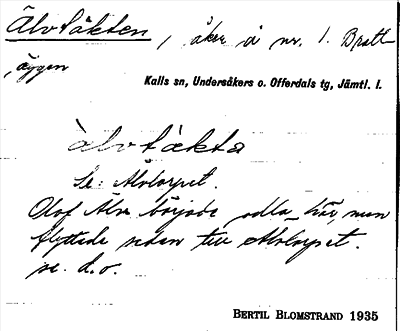 Älvtäkten, åker å nr. 1. Bratt-
äggen
Kalls sn, Undersåkers o. Offerdals tg, Jämtl. l.
älvtäkta
Se: Älvtorpet.
Olof Älv började odla här, men
flyttade sedan till Älvtorpet.
se. d. o.
BERTIL BLOMSTRAND 1935